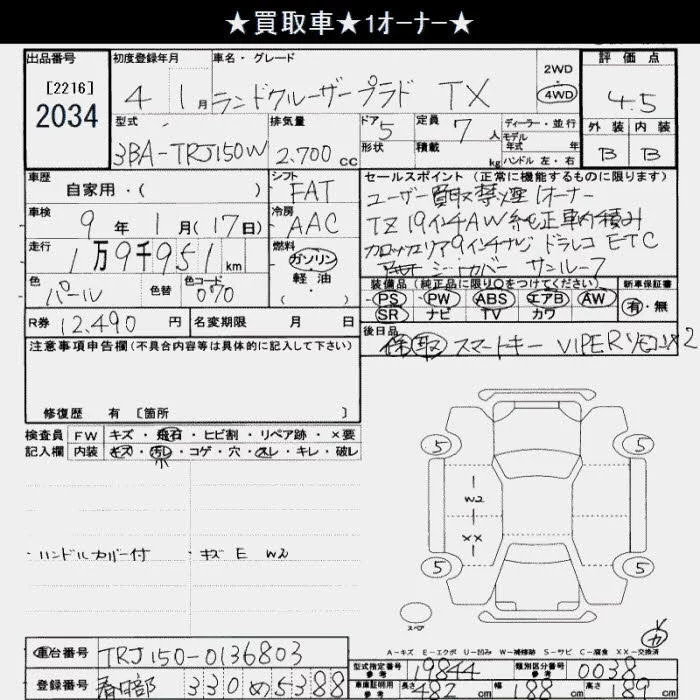 ★買取車★1オーナー★
出品番号 初度登録年月 車名・グレード 評価点
[2216] 4 1月 ランドクルーザープラド TX 2WD 4WD 4.5
2034
型式 排気量 ドア 5 定員 7人 ディーラー・並行 外装 内装
3BA-TRJ150W 2.700 cc 形状 積載 kg モデル年式 年式 ハンドル 左・右 B B
車歴 シフト セールスポイント (正常に機能するものに限ります)
自家用・( ) FAT ユーザー買取 禁煙 1オーナー
車検 9年1月(17日) 冷房 AAC TZ 19インチAW 純正車内積み
走行 1万9千951km 燃料 カロッツェリア9インチナビ ドラレコ ETC
ガソリン シートカバー サンルーフ
色 色替 色コード 軽油 装備品 (純正品に限り○をつけてください) 新車保証書
パール 070 ( ) PS ・ PW ・ ABS ・ エアB ・ AW 有・無
SR ナビ TV カワ
R券 12.490 円 名変期限 月 日 後日品
保 取 スマートキー VIPERリモコン×2
注意事項申告欄(不具合内容等は具体的に記入して下さい)
修復歴 有 [箇所 ]
検査員 FW キズ・飛石・ヒビ割・リペア跡・×要
記入欄 内装 キズ・汚レ・コゲ・穴・スレ・キレ・破レ
5 5
W2
XX
5 5
ハンドルカバー付 キズ E W2
スペア
カ
A-キズ E-エクボ U-凹み W-補修跡 S-サビ C-腐食 XX-交換済
車台番号 TRJ150-0136803
型式指定番号 参考 19844 類別区分番号 参考 0038
登録番号 春日部 330 め 5388
車庫証明用 参考 長さ 482 cm 幅 188 cm 高さ 189 cm